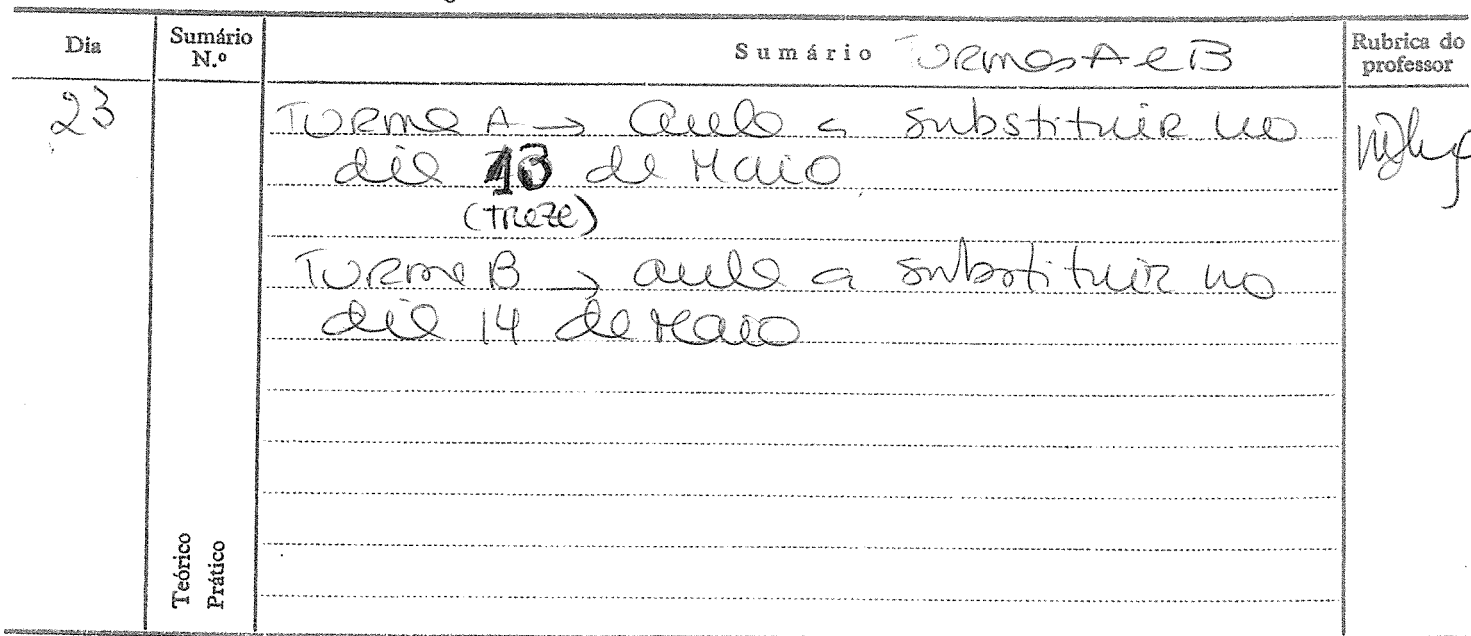 Dia Sumário N.º Sumário Turmas A e B Rubrica do professor
23
Turma A → aula a substituir no
dia 13 de Maio
(treze)
Turma B → aula a substituir no
dia 14 de Maio
Teórico
Prático